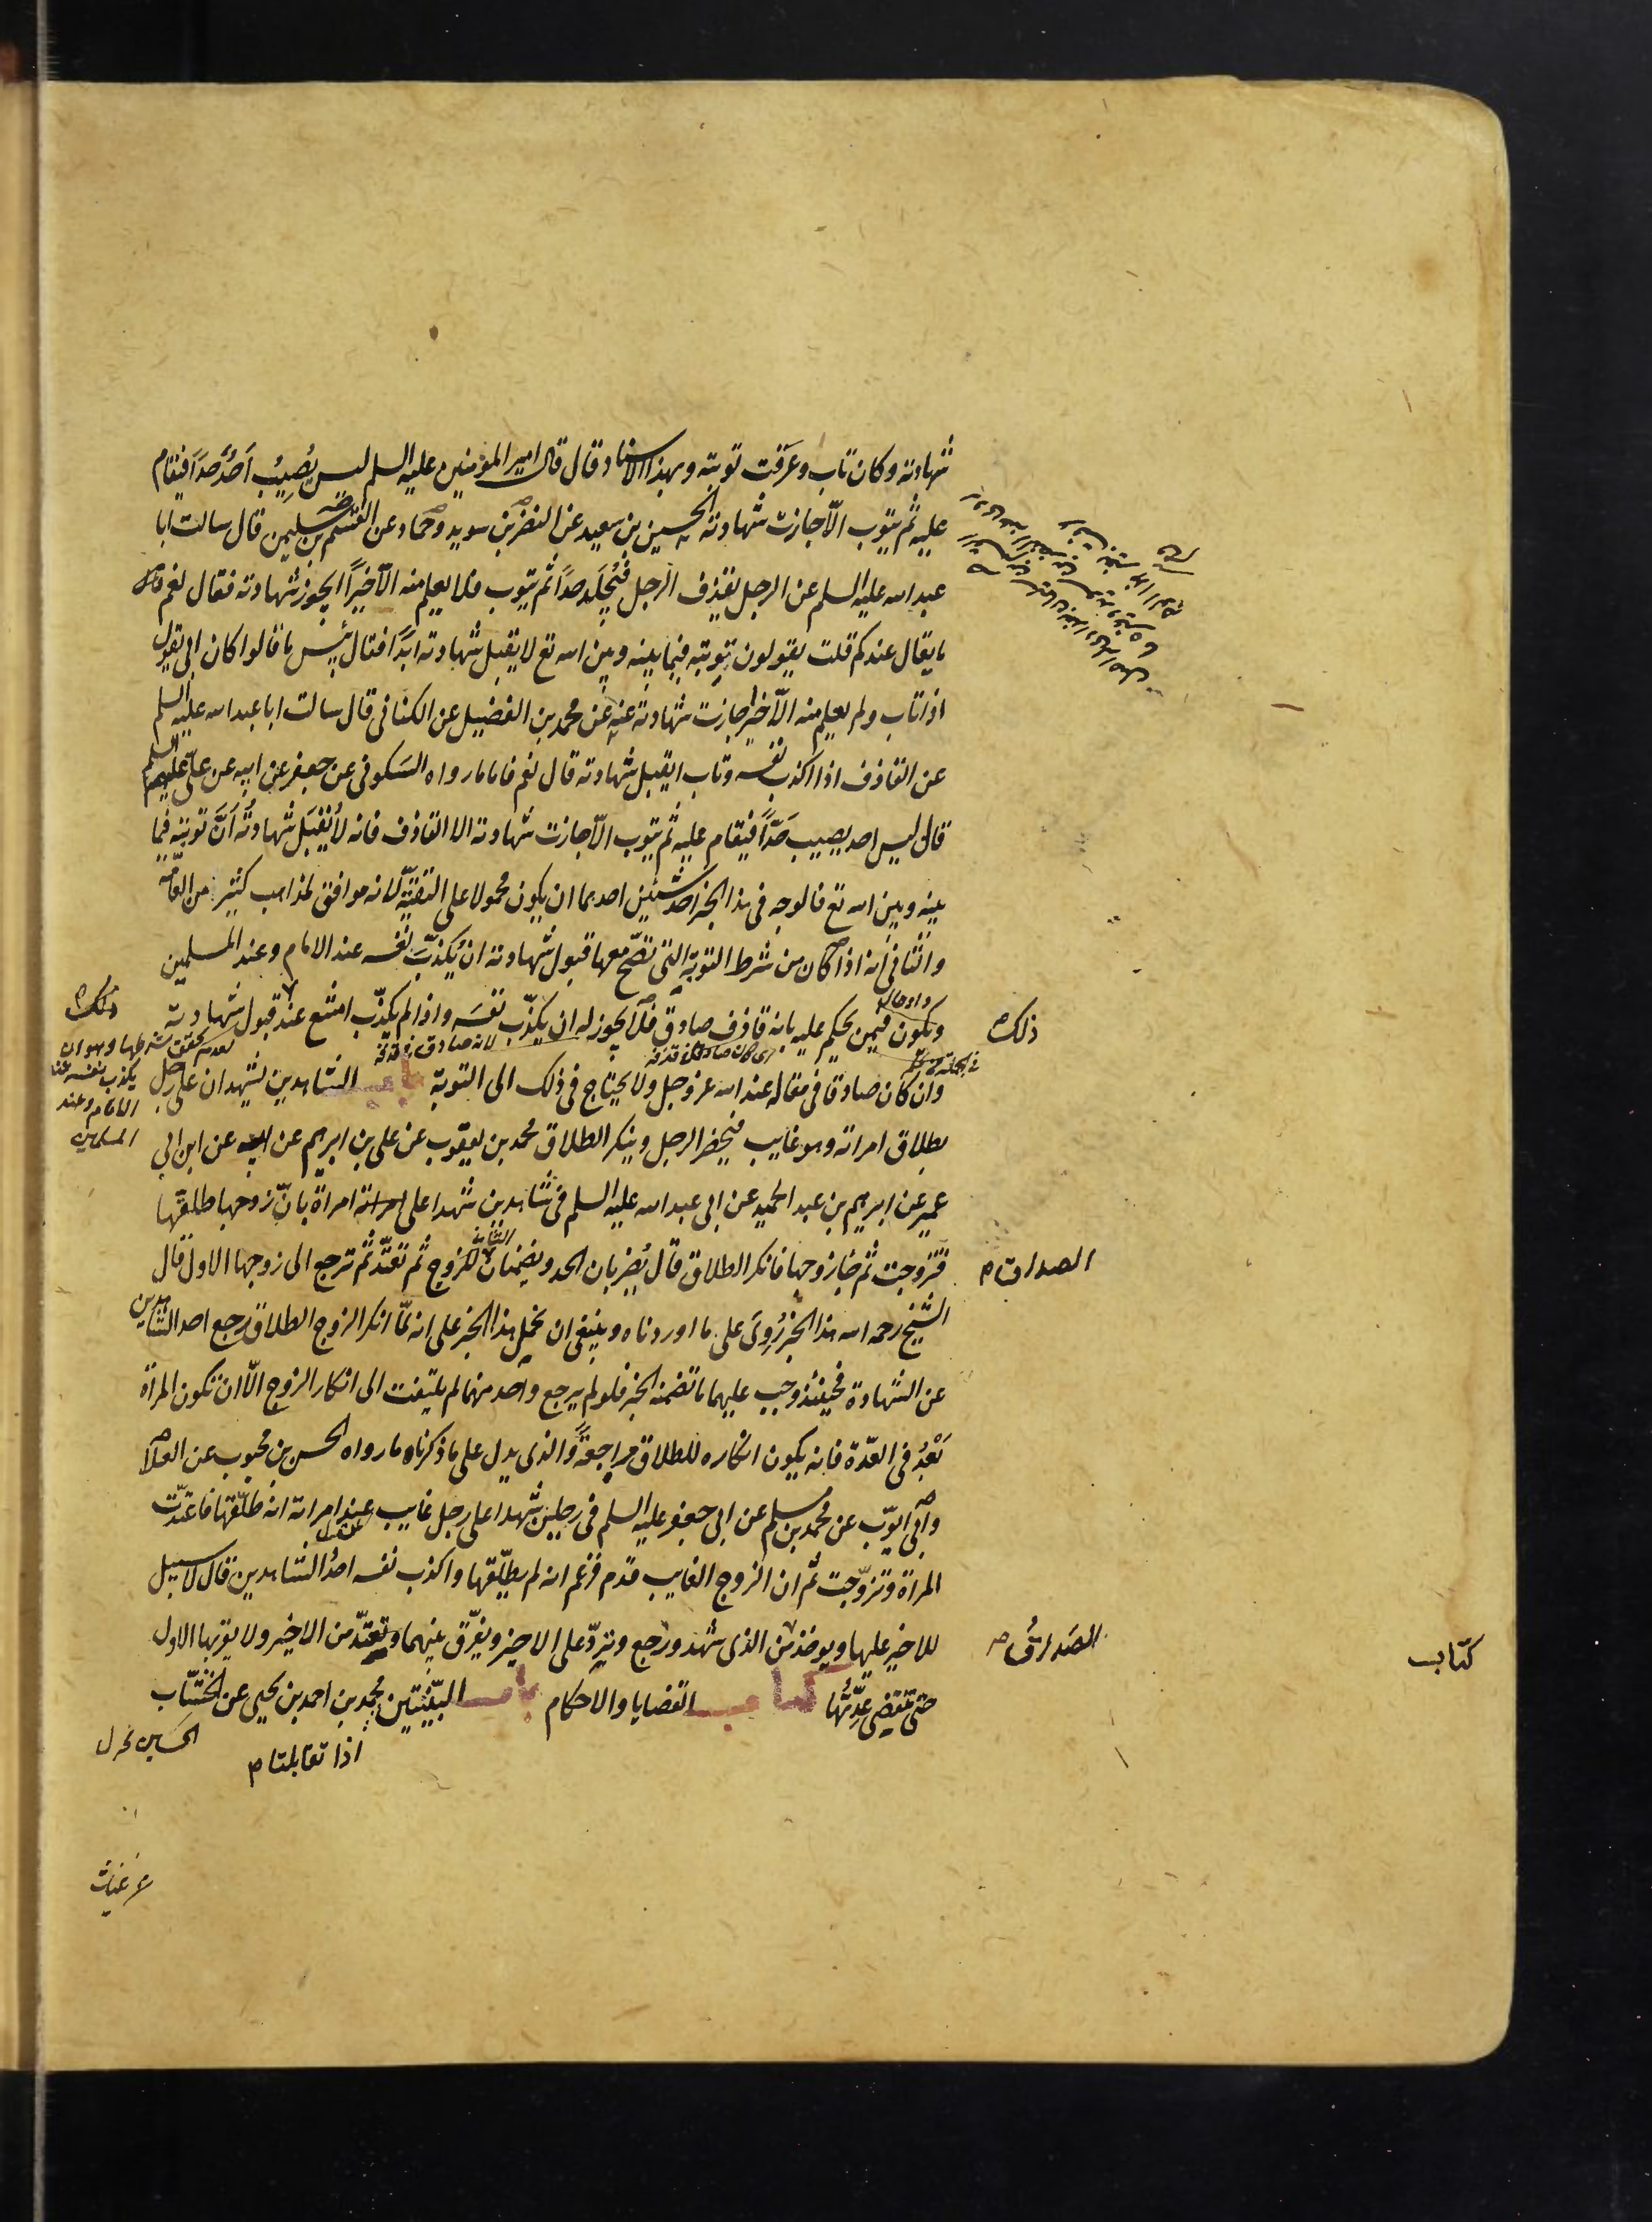 شهادته وكان تاب وعرفت توبته وبهذا الاسناد قال قال امير المؤمنين عليه السلم ليس يُصِيبُ اَحَدٌ حدّاً فيقام
عليه ثم يتوب الّا جازت شهادته الحسين بن سعيد عن النضر بن سويد وحماد عن القسم بن سليمن قال سالت ابا
عبد الله عليه السلم عن الرجل يقذف الرجل فيُجلَد حدّاً ثم يتوب فلا يعلم منه الّا خيراً ايجوز شهادته فقال نعم
ما يقال عندكم قلت يقولون توبته فيما بينه وبين الله تع لا يقبل شهادته ابداً فقال بئس ما قالوا كان ابى يقول
اذا تاب ولم يعلم منه الّا خيرا جازت شهادته عنه عن محمد بن الفضيل عن الكنانى قال سالت ابا عبد الله عليه السلم
عن القاذف اذا اكذب نفسه وتاب ايقبل شهادته قال نعم فاما ما رواه السكونى عن جعفر عن ابيه عن علىّ عليهم السلم
قال ليس احد يصيب حَدّاً فيقام عليه ثم يتوب الّا جازت شهادته الا القاذف فانه لا يُقبَل شهادتُه اَنَّ توبته فيما
بينه وبين الله تع فالوجه فى هذا الخبر احد شيئين احدهما ان يكون محمولا على التقيّة لانه موافق لمذاهب كثير من العامّه
والثانى أنه اذا كان من شرط التوبة التى تصحّ معها قبول شهادته ان يُكذّبَ نفسه عند الامام وعند المسلمين
ويكون فيمن يحكم عليه بانه قاذف صادق فلا يجوز له ان يكذّب نفسَه واذا لم يكذّب امتنع عند قبول شهادته
وان كان صادقا فى مقاله عند الله عز وجل ولا يحتاج فى ذلك الى التوبة باب الشاهدين يشهدان على رجل
بطلاق امراته وهو غايب فيحضر الرجل وينكر الطلاق محمد بن يعقوب عن على بن ابرهيم عن ابيه عن ابن ابى
عمير عن ابرهيم بن عبد الحميد عن ابى عبد الله عليه السلم فى شاهدين شهدا على امراة بانّ زوجها طلقها
فتزوجت ثم جاء زوجها فانكر الطلاق قال يُضربان الحد ويضمنان للزوج ثم تعتدّ ثم ترجع الى زوجها الاول قال
الشيخ رحمه الله هذا الخبر رُوِىَ على ما اوردناه وينبغى ان نحمل هذا الخبر على انه لمّا انكر الزوج الطلاق رجع احد الشاهدين
عن الشهادة فحينئذ وجب عليهما ما تضمنه الخبر فلو لم يرجع واحد منهما لم يلتفت الى انكار الزوج الّا ان تكون المرأة
بَعْدُ فى العدّة فانه يكون انكاره للطلاق مراجعةً والذى يدل على ما ذكرناه ما رواه الحسن بن محبوب عن العلا
وابى ايوّب عن محمد بن مسلم عن ابى جعفر عليه السلم فى رجلين شهدا على رجل غايب عند امراته انه طلّقها فاعتدّت
المراة وتزوّجت ثم ان الزوج الغايب قدم فزعم انه لم يطلّقها واكذب نفسه احدُ الشاهدين قال لا سبيل
للاخير عليها ويوخذ من الذى شهد ورجع ويردّ على الاخير ويفرّق بينهما وتعتدّ من الاخير ولا يقربها الاول
حتى تنقضى عِدّتُها كتاب القضايا والاحكام باب البيّنتين محمد بن احمد بن يحيى عن الخشّاب
ذلك
الصداق م
الصَداقُ
كتاب
ذلك
يكذب نفسه عند
الامام وعند
المسلمين
اذا تقابلتا م
عن غياث